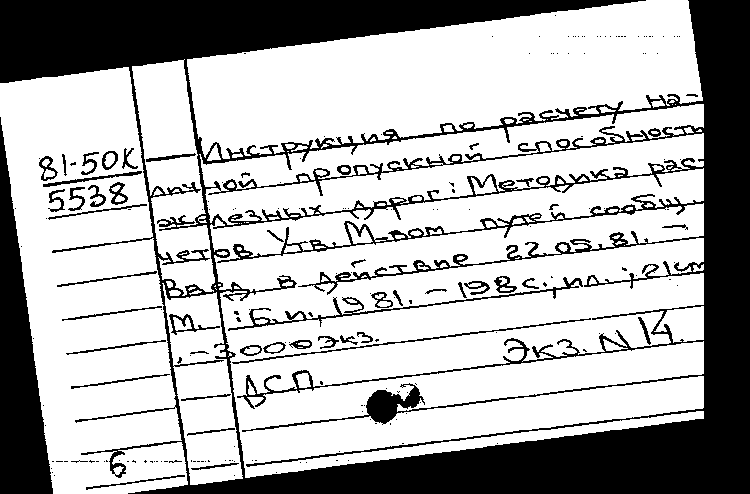 81-50К
5538
— Инструкция по расчету на-
личной пропускной способность
железных дорог: Методика рас-
четов. Утв. М-вом путей сообщ.
Введ. в действие 22.05.81. –
М. : Б.и., 1981. – 198 с.; ил. ; 21 см
. – 3000 экз.
ДСП. Экз. N 14.
6